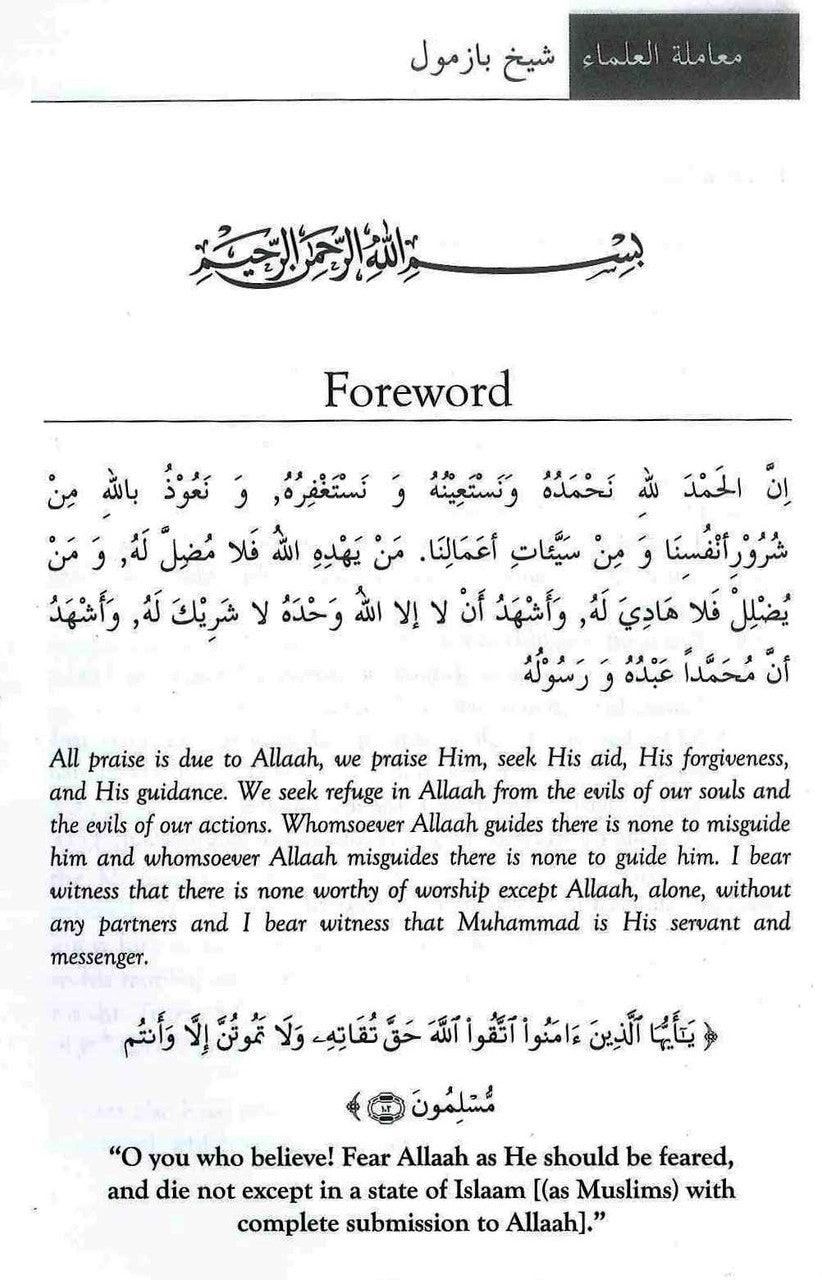 معاملة العلماء شيخ بازمول
بِسْمِ اللهِ الرَّحْمَنِ الرَّحِيمِ
Foreword
إِنَّ الحَمْدَ للهِ نَحْمَدُهُ وَنَسْتَعِيْنُهُ وَ نَسْتَغْفِرُهُ, وَ نَعُوْذُ باللهِ مِنْ
شُرُوْرِ أنْفُسِنَا وَ مِنْ سَيَّئَاتِ أعَمَالِنَا. مَنْ يَهْدِهِ اللهُ فَلا مُضِلَّ لَهُ, وَ مَنْ
يُضْلِلْ فَلا هَادِيَ لَهُ, وَأَشْهَدُ أَنْ لا إلا اللهُ وَحْدَهُ لا شَرِيْكَ لَهُ, وَأَشْهَدُ
أنَّ مُحَمَّداً عَبْدُهُ وَ رَسُوْلُهُ
All praise is due to Allaah, we praise Him, seek His aid, His forgiveness,
and His guidance. We seek refuge in Allaah from the evils of our souls and
the evils of our actions. Whomsoever Allaah guides there is none to misguide
him and whomsoever Allaah misguides there is none to guide him. I bear
witness that there is none worthy of worship except Allaah, alone, without
any partners and I bear witness that Muhammad is His servant and
messenger.
﴿ يَـٰٓأَيُّهَا ٱلَّذِينَ ءَامَنُواْ ٱتَّقُواْ ٱللَّهَ حَقَّ تُقَاتِهِۦ وَلَا تَمُوتُنَّ إِلَّا وَأَنتُم
مُّسْلِمُونَ ١٠٢ ﴾
“O you who believe! Fear Allaah as He should be feared,
and die not except in a state of Islaam [(as Muslims) with
complete submission to Allaah].”